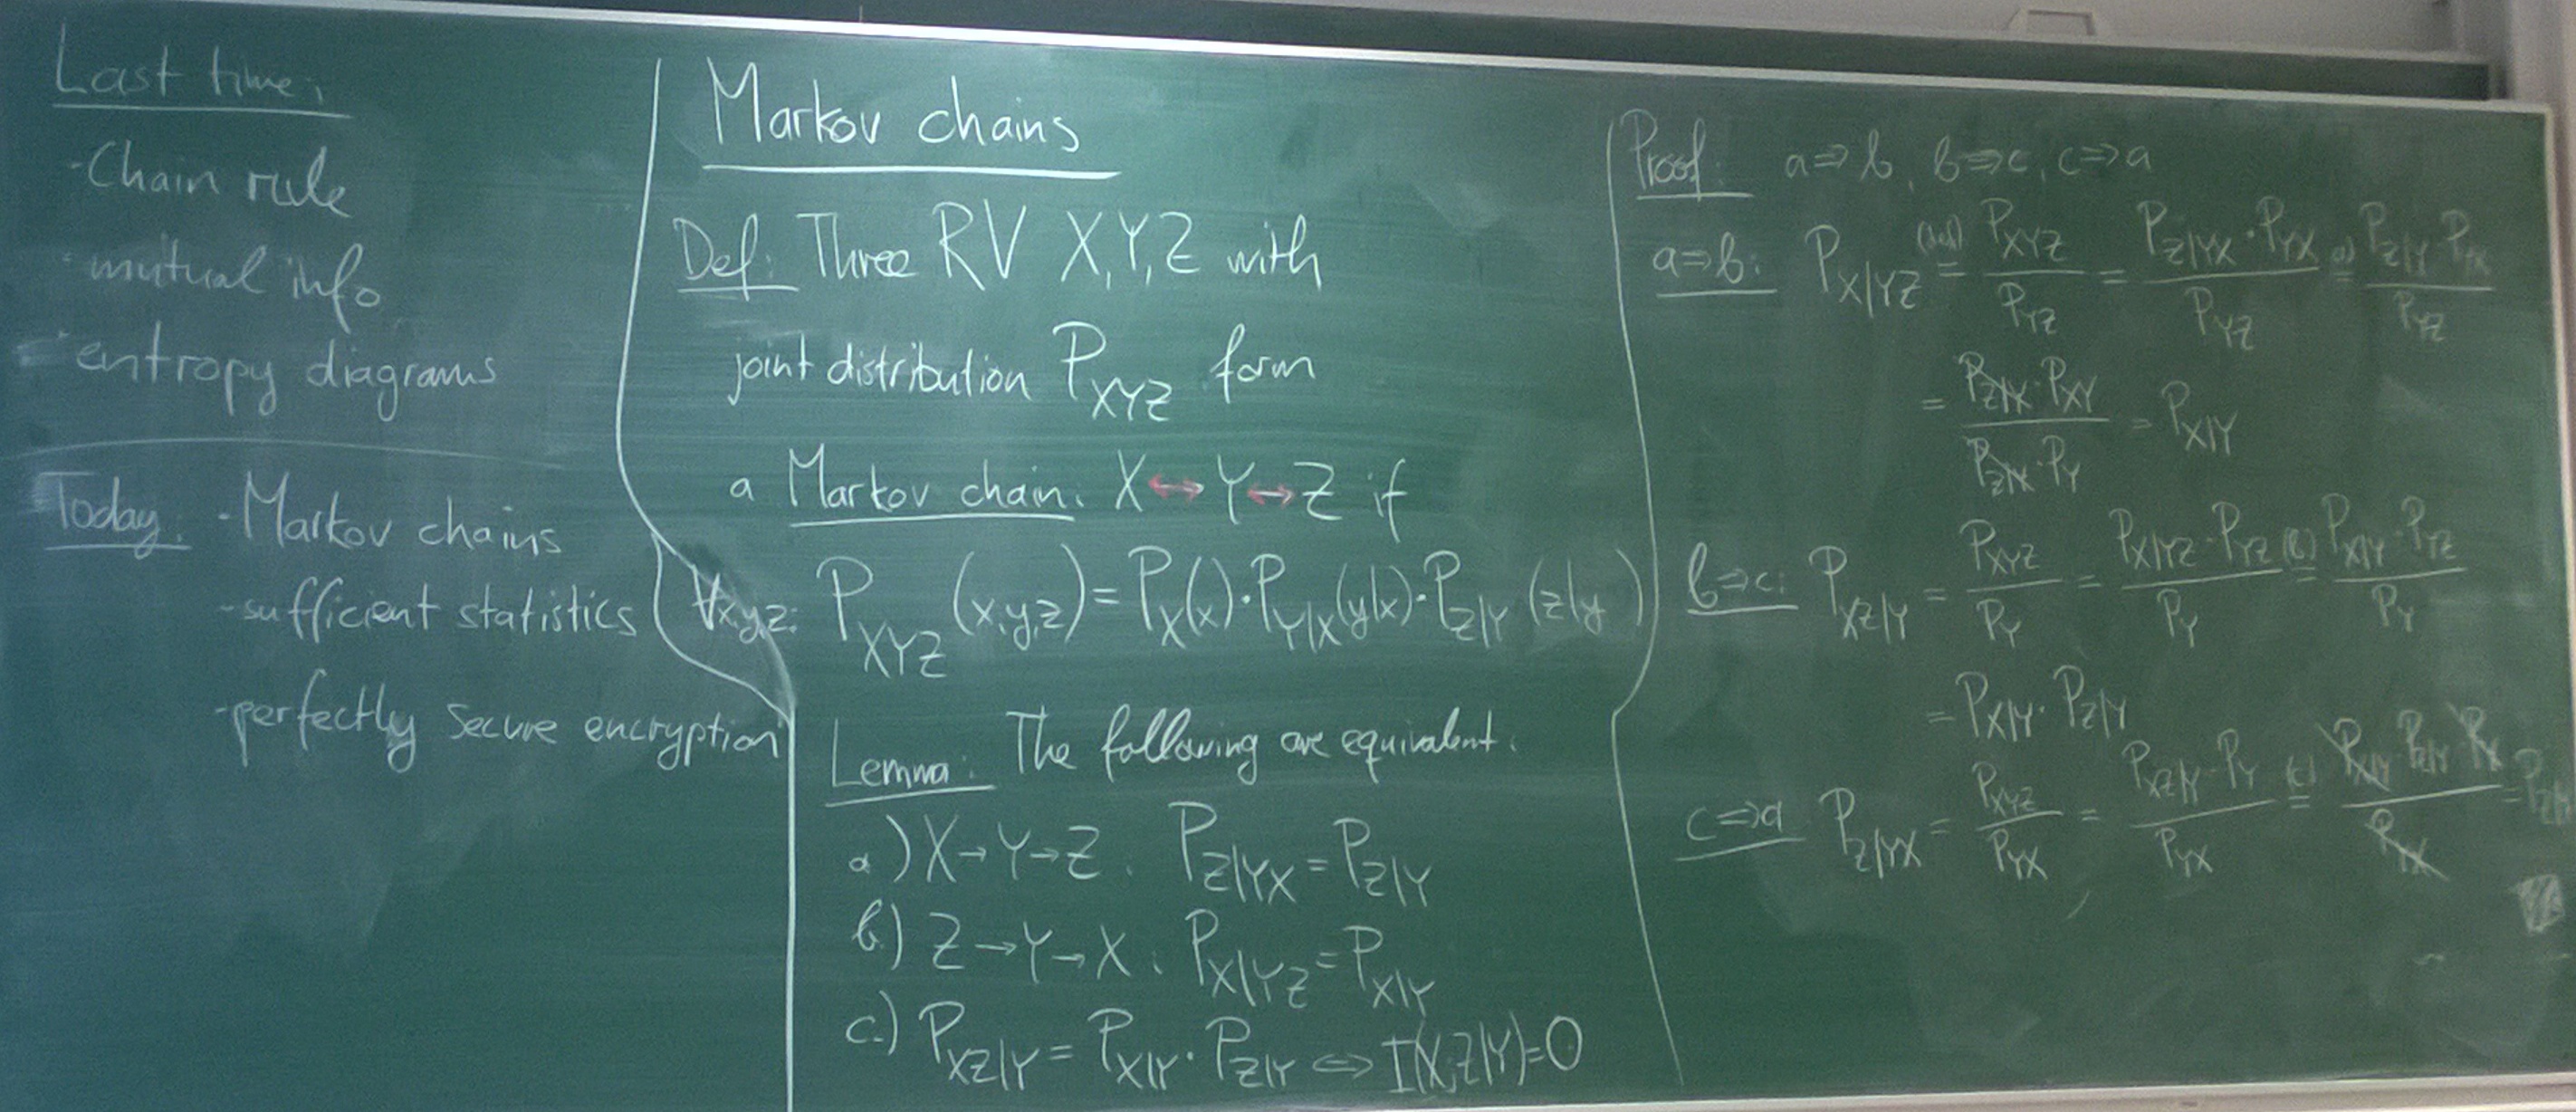 Last time:
- Chain rule
- mutual info
- entropy diagrams
Today: - Markov chains
- sufficient statistics
- perfectly secure encryption
Markov chains
Def: Three RV X, Y, Z with
joint distribution P_XYZ form
a Markov chain: X ↔ Y ↔ Z if
∀x,y,z: P_XYZ (x,y,z) = P_X(x) · P_Y|X(y|x) · P_Z|Y (z|y)
Lemma: The following are equivalent:
a.) X → Y → Z : P_Z|YX = P_Z|Y
b.) Z → Y → X : P_X|YZ = P_X|Y
c.) P_XZ|Y = P_X|Y · P_Z|Y ⇔ I(X;Z|Y)=0
Proof: a ⇒ b, b ⇒ c, c ⇒ a
a ⇒ b: P_X|YZ = P_XYZ / P_YZ = P_Z|YX · P_YX / P_YZ (a)= P_Z|Y · P_YX / P_YZ
= P_Z|Y · P_XY / P_Z|Y · P_Y = P_X|Y
b ⇒ c: P_XZ|Y = P_XYZ / P_Y = P_X|YZ · P_YZ / P_Y (b)= P_X|Y · P_YZ / P_Y
= P_X|Y · P_Z|Y
c ⇒ a P_Z|YX = P_XYZ / P_YX = P_XZ|Y · P_Y / P_YX (c)= P_X|Y · P_Z|Y · / P_YX =